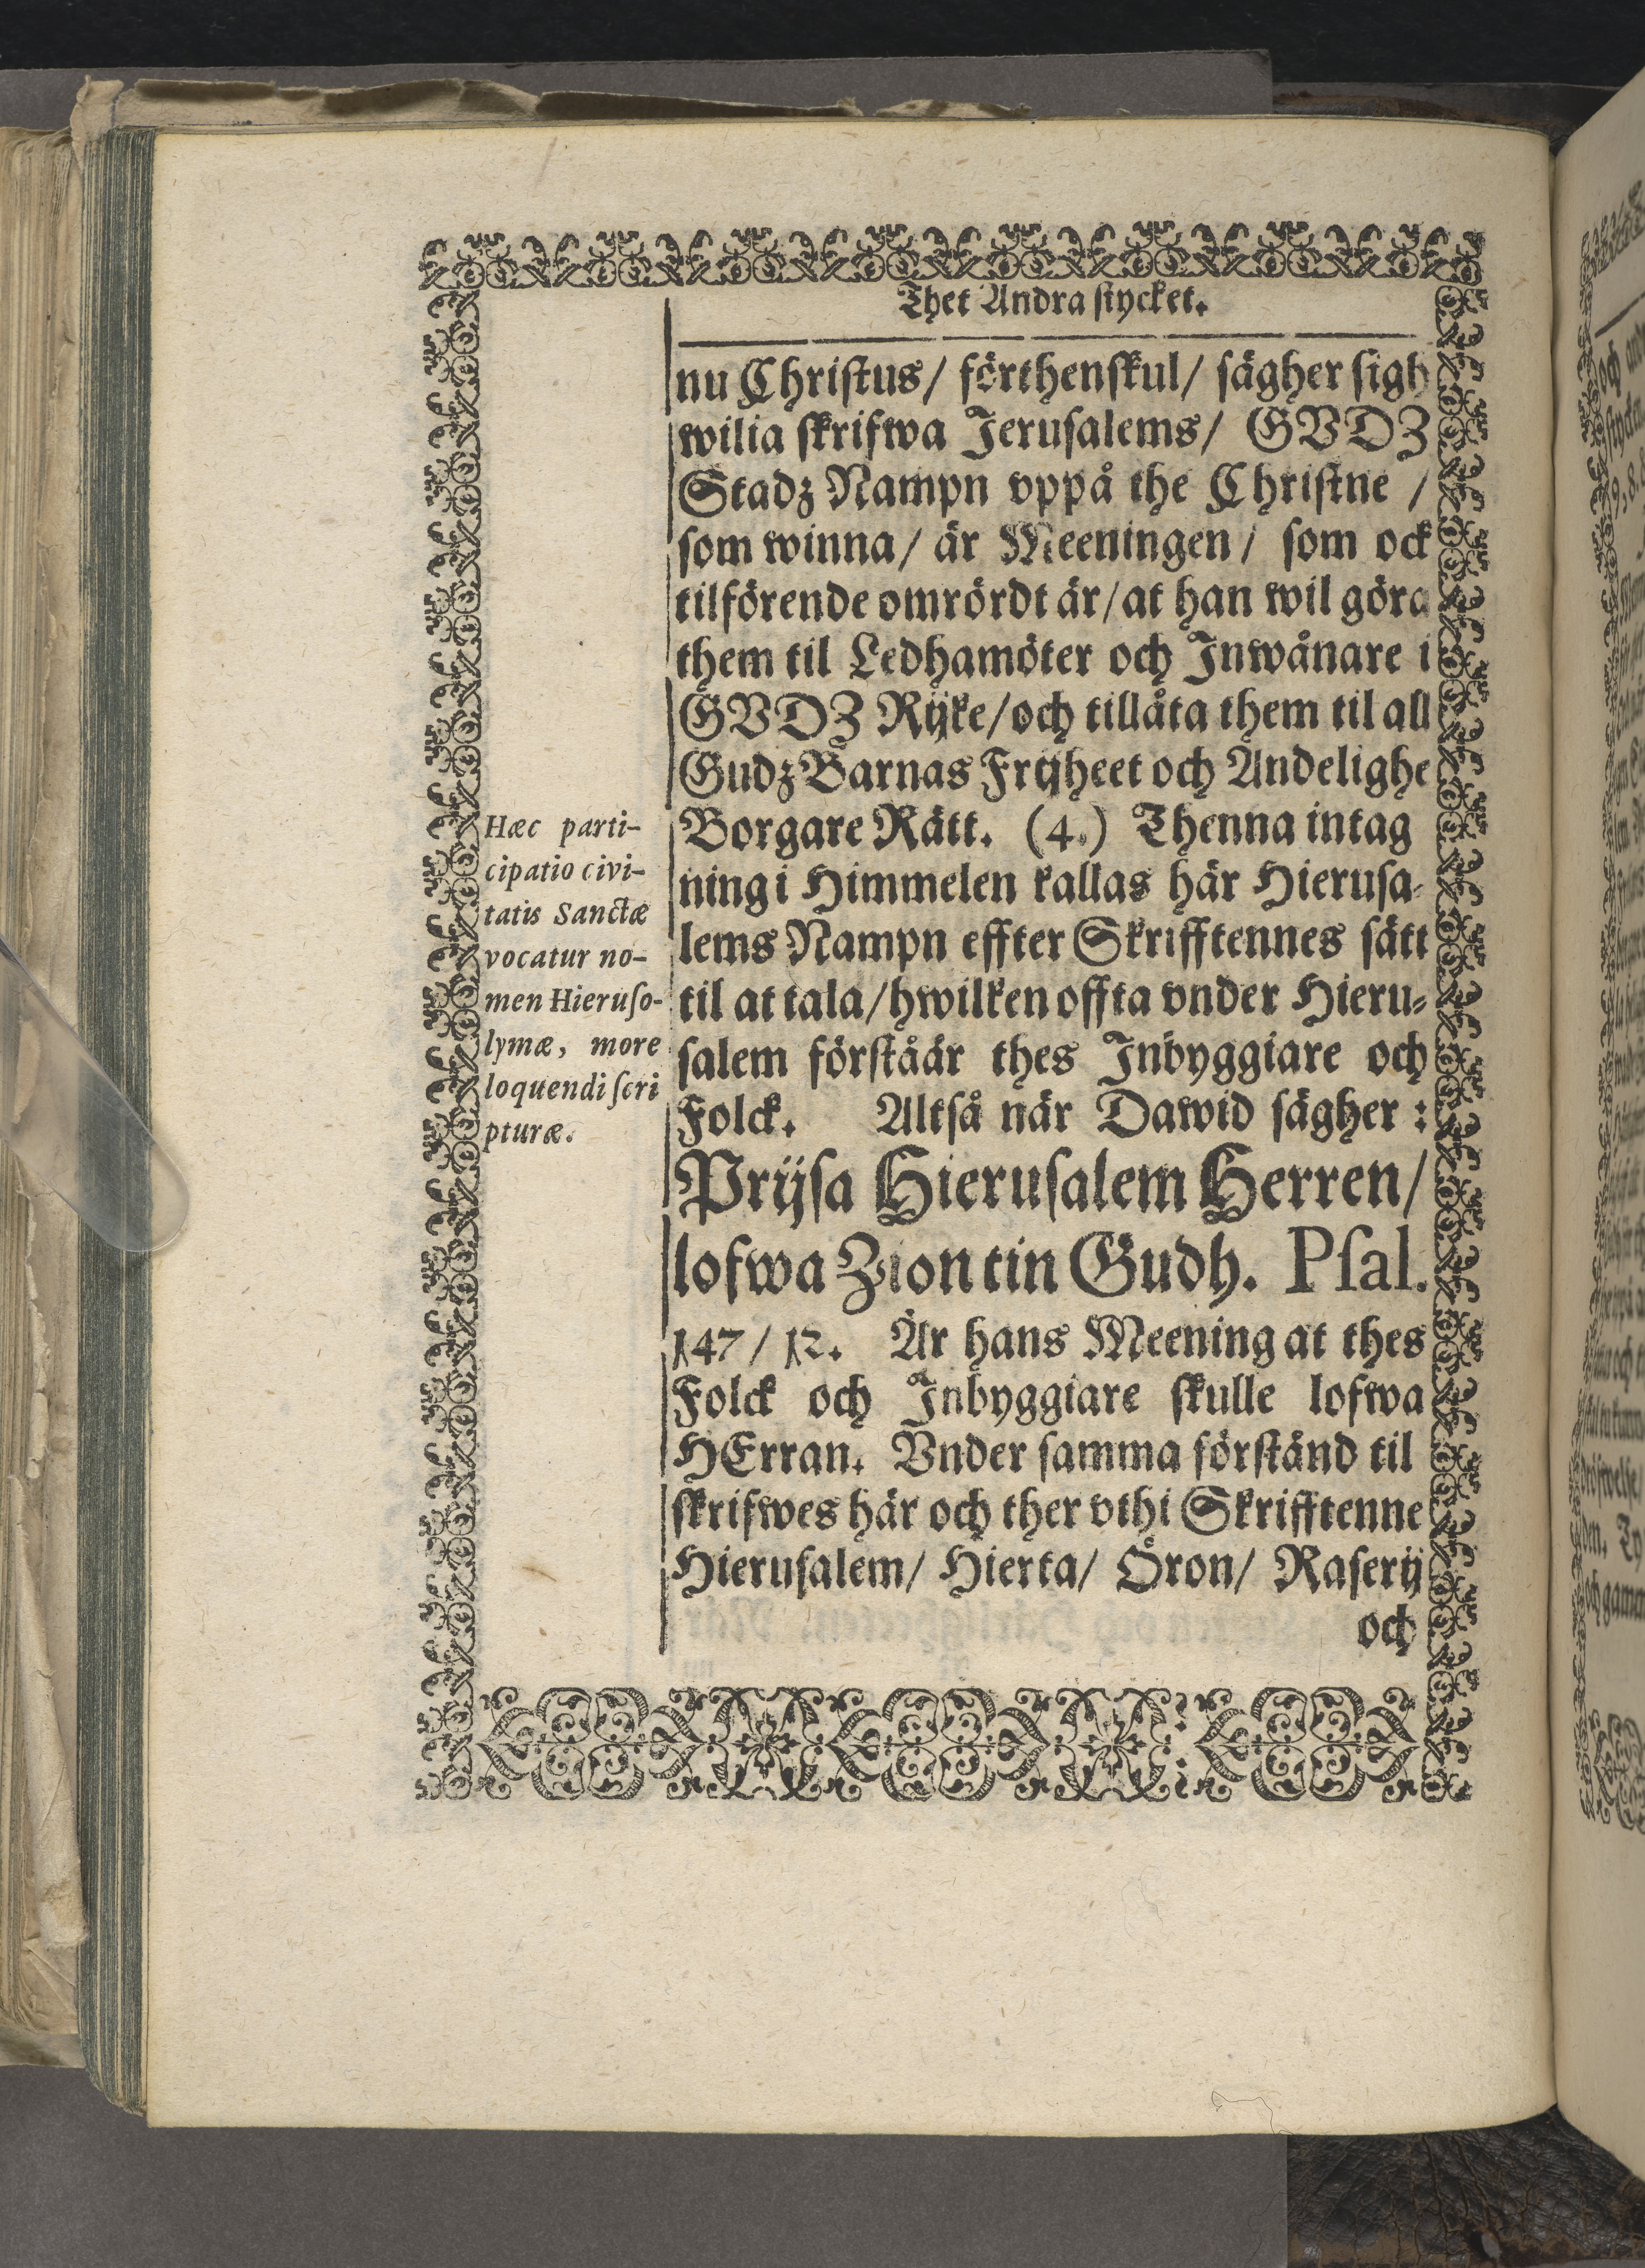 Thet Andra stycket.
nu Christus/ förthenskul/ sägher sigh
wilia skrifwa Jerusalems/ GVDZ
Stadz Nampn vppå the Christne /
som winna/ är Meeningen/ som ock
tilförende omrördt är/at han wil göra
them til Ledhamöter och Inwånare i
GVDZ Rijke/och tillåta them til all
Gudz Barnas Frijheet och Andelighe
Borgare Rätt. (4.) Thenna intag
ning i Himmelen kallas här Hierusa-
lems Nampn effter Skrifftennes sätt
til at tala/hwilken offta vnder Hieru-
salem förståår thes Inbyggiare och
Folck. Altså när Dawid sägher :
Prijsa Hierusalem Herren/
lofwa Zion tin Gudh. Psal.
147/ 12. Är hans Meening at thes
Folck och Inbyggiare skulle lofwa
HErran. Vnder samma förstånd til
skrifwes här och ther vthi Skrifftenne
Hierusalem/ Hierta/ Öron/ Raserij
och
Hæc parti-
cipatio civi-
tatis Sanctæ
vocatur no-
men Hieruso-
lymæ, more
loquendi scri
pturæ.